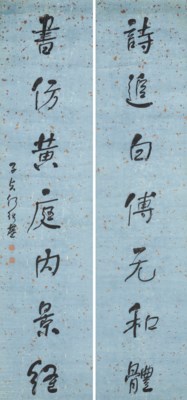 詩追白傅元和體
書仿黃庭內景經
子貞何紹基